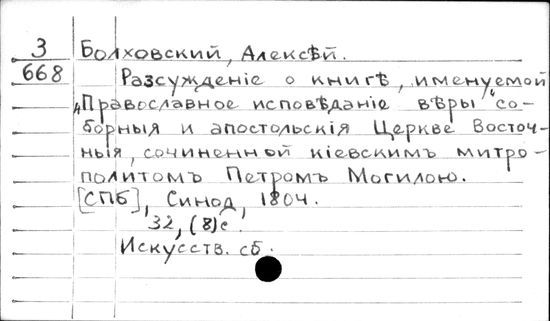 3
668
Болховский, Алексѣй.
Разсужденіе о книгѣ, именуемой
„Православное исповѣданіе вѣры" со-
борныя и апостольскія Церкве Восточ-
ныя, сочиненной кіевскимъ митро-
политомъ Петромъ Могилою.
[СПб], Синод, 1804.
32, (8) с.
Искусств. сб.